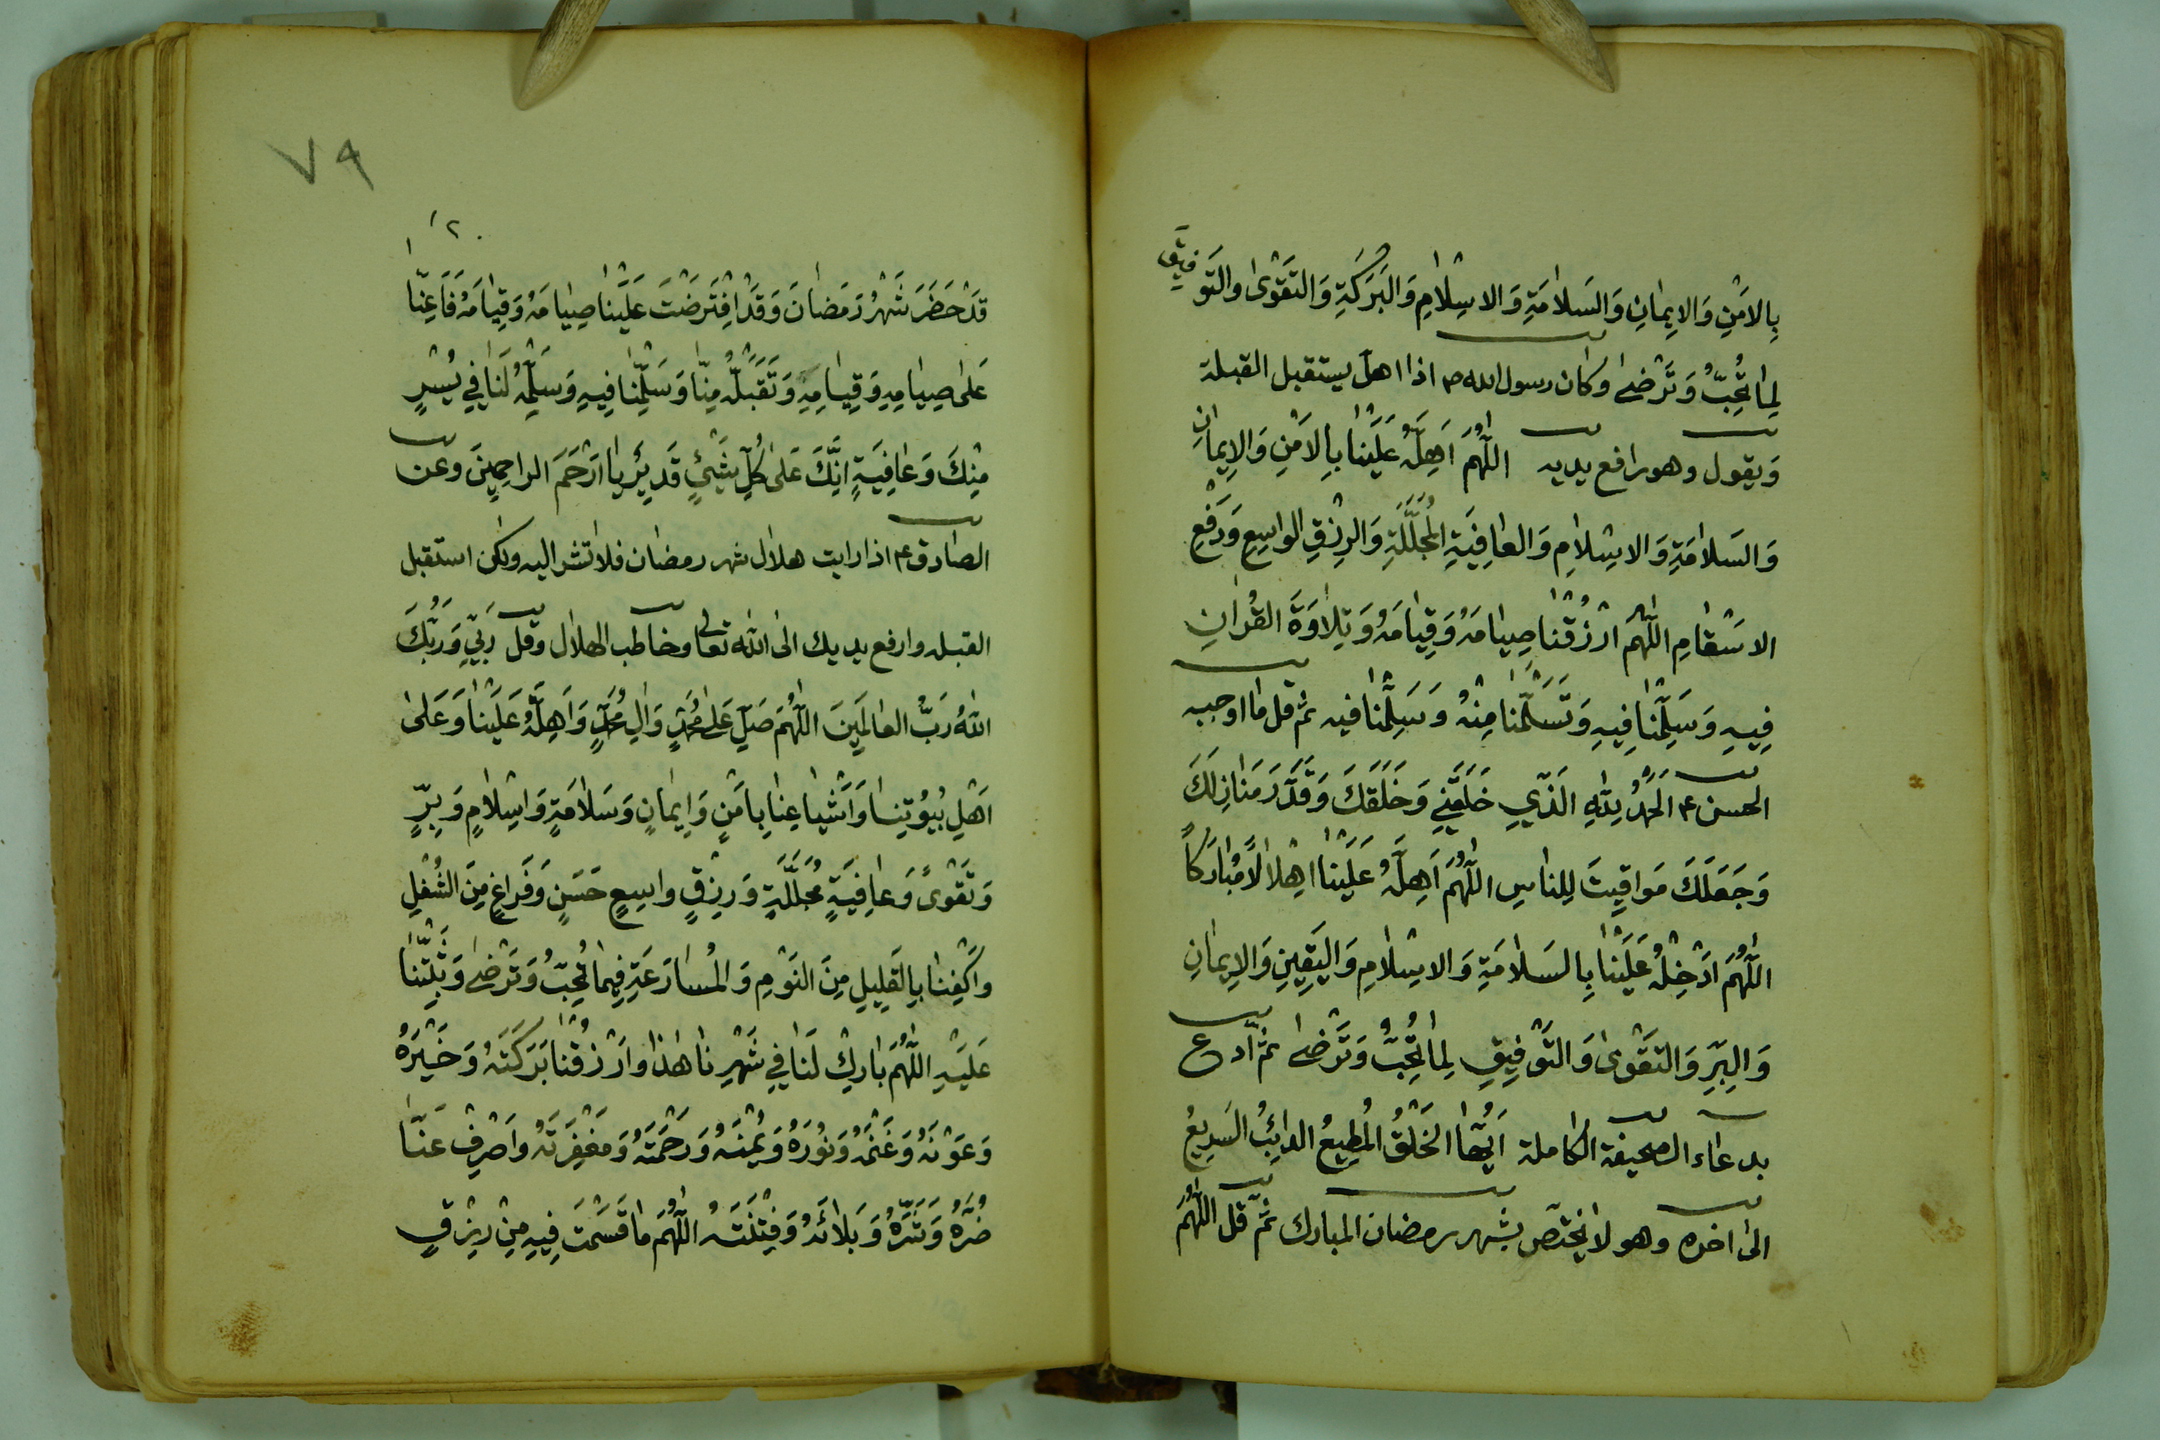 بِالاَمْنِ وَالاِيمٰانِ وَالسَلاٰمَةِ وَالاسِْلاٰمِ وَالبَرَكَةِ وَالتَقْوىٰ والتَوفيق
لِمٰا تُحِبُّ وَتَرْضىٰ وكان رسول الله ص اذا اهلّ يستقبل القبلة
وَيقول وهو رافع يديه اللّٰهُمَ اَهِلَّهُ عَلَيْنٰا بِالاَمْنِ وَالاِيمٰانِ
وَالسَلاٰمَةِ وَالاسِْلاٰمِ وَالعٰافِيَةِ المُجَلَّلَةِ وَالرِزْقِ الوٰاسِعِ وَدَفْعِ
الاسَْقٰامِ اللّٰهُمَ ارْزُقْنٰا صِيٰامَهُ وَقِيٰامَهُ وَتِلاٰوَةَ القُرْاٰنِ
فِيهِ وَسَلِّمْنٰا فِيهِ وَتَسَلَّمْنٰا مِنْهُ وَسَلِّمْنٰا فيه ثم قل ما اوجبه
الحسن ع الحَمْدُ لِلّٰهِ الَذّي خَلَقَنِي وَخَلَقَكَ وَقَدَّرَ مَنٰازِلَكَ
وَجَعَلَكَ مَوٰاقِيتَ لِلنٰاسِ اللّٰهُمَ اَهِلَّهُ عَلَيْنٰا اهِْلاٰلاً مُبٰارَكاً
اللّٰهُمَ ادَْخِلْهُ عَلَيْنٰا بِالسَلاٰمَةِ وَالاسِْلاٰمِ وَاليَقِينِ وَالاِيمٰانِ
وَالبِرِّ وَالتَقْوىٰ وَالتَوْفِيقِ لِمٰا تُحِبُّ وَتَرْضىٰ ثمّ ادع
بدعاء الصحيفة الكاملة اَيُّهٰا الخَلْقُ المُطِيعُ الدائِبُ السَرِيعُ
الىٰ اخره وهو لا يختصّ بشهر رمضان المبارك ثمّ قل اللّٰهُمَ
٧٩
١٢٠
قَدْ حَضَرَ شَهْرُ رَمَضٰانَ وَقَدْ افْتَرَضْتَ عَلَيْنٰا صِيٰامَهُ وَقِيٰامَهُ فَاَعِنّٰا
عَلىٰ صِيٰامِهِ وَقِيٰامِهِ وَتَقَبَّلْهُ مِنّٰا وَسَلِّمْنٰا فِيهِ وَسَلِّمْهُ لَنٰا فِي يُسْرٍ
مِنْكَ وَعٰافِيَةٍ اِنَّكَ عَلىٰ كُلِّ شَيْئٍ قَدِيرٌ يٰا ارَْحَمَ الراحِمِينَ وعن
الصادق ع اذا رايت هلال شهر رمضان فلا تشر اليه ولكن استقبل
القبله وارفع يديك الى الله تعالى وخاطب الهلال وقل رَبّيِ وَرَبُّكَ
اللّٰهُ رَبُّ العٰالَمِينَ اللّٰهُمَ صَلِّ عَلىٰ مُحَمَّدٍ وَاٰلِ مُحَمَّدٍ وَاَهِلَّهُ عَلَيْنٰا وَعَلىٰ
اهَْلِ بُيُوتِنٰا وَاَشْيٰاعِنٰا بِاَمْنٍ وَاِيمٰانٍ وَسَلاٰمَةٍ وَاسِْلاٰمٍ وَبِرٍّ
وَتَقْوىً وَعٰافِيَةٍ مُجَلَّلَةٍ وَرِزْقٍ واسِعٍ حَسَنٍ وَفَرٰاغٍ مِنَ الشُغْلِ
وَاكْفِنٰا بِالقَلِيلِ مِنَ النَوْمِ وَالمُسٰارَعَةِ فِيمٰا تُحِبُّ وَتَرْضىٰ وَثَبِّتْنٰا
عَلَيْهِ اللّٰهُمَ بٰارِكْ لَنٰا فِي شَهْرِنٰا هٰذٰا وارْزُقْنٰا بَرَكَتَهُ وَخَيْرَهُ
وَعَوْنَهُ وَغَنْمَهُ وَنُورَهُ وَيُمْنَهُ وَرَحْمَتَهُ وَمَغْفِرَتَهُ واصْرِفْ عَنّٰا
ضُرَّهُ وَشَرَّهُ وَبَلاٰئَهُ وَفِتْنَتَهُ اللّٰهُمَ مٰا قَسَمْتَ فِيهِ مِنْ رِزْقٍ